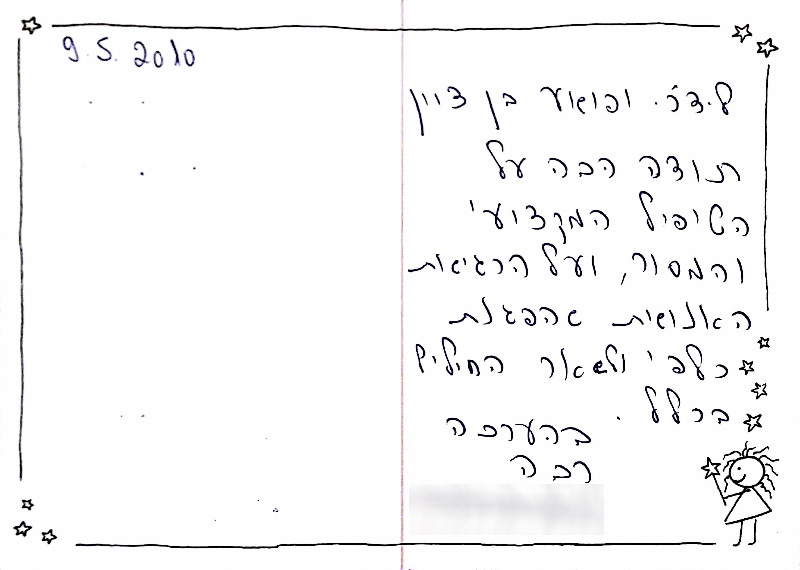 9.5.2010
לד"ר. יהושע בן ציון
תודה רבה על
הטיפול המקצועי
והמסור, ועל הרגישות
האנושית שהפגנת
כלפי ולשאר החולים
בכלל.
בהערכה
רבה